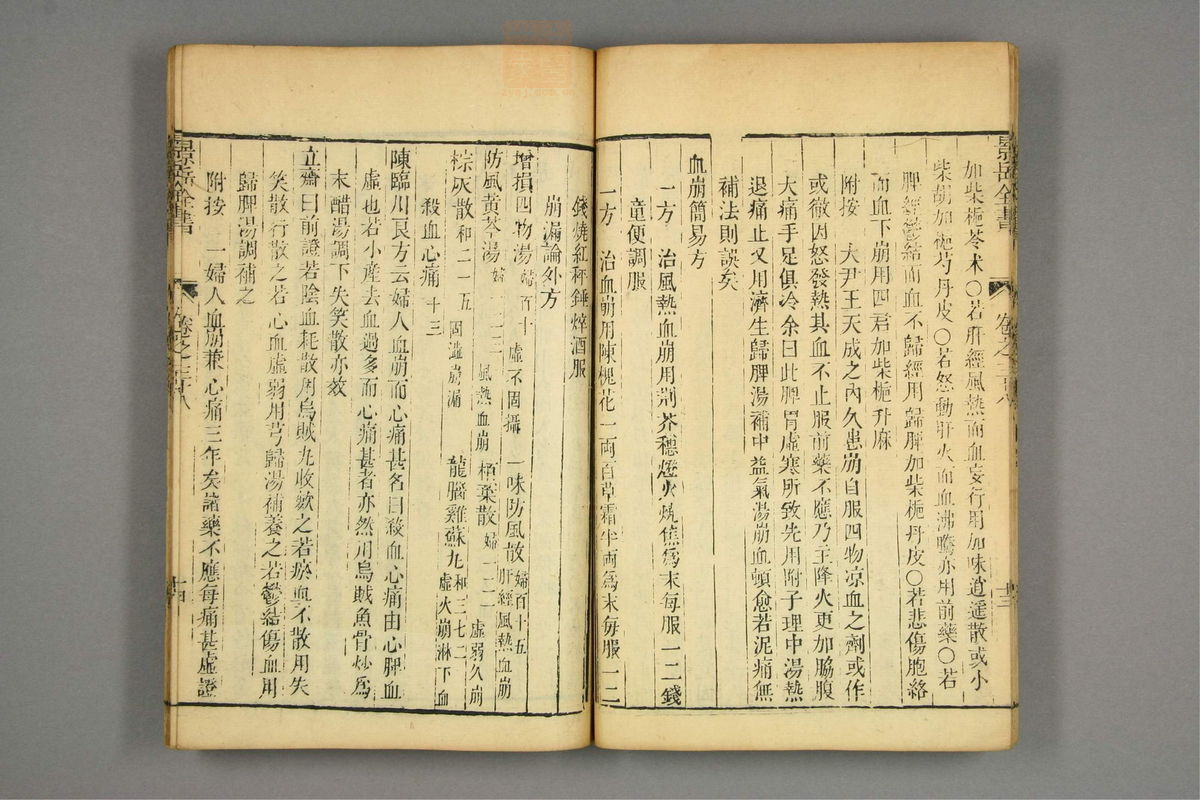 景岳全書
卷之三十八
加柴梔苓术○若肝經風熱而血妄行用加味逍遥散或小
柴胡加梔芍丹皮○若怒動肝火而血沸騰亦用前藥○若
脾經鬱結而血不歸經用歸脾加柴梔丹皮○若悲傷胞絡
而血下崩用四君加柴梔升麻
附按 大尹王天成之內久患崩自服四物凉血之劑或作
或徹因怒發熱其血不止服前藥不應乃主降火更加脇腹
大痛手足俱冷余曰此脾胃虛寒所致先用附子理中湯熱
退痛止又用濟生歸脾湯補中益氣湯崩血頓愈若泥痛無
補法則誤矣
血崩簡易方
一方 治風熱血崩用荆芥穗燈火燒焦爲末每服一二錢
童便調服
一方 治血崩用陳槐花一両百草霜半両爲末每服一二
錢燒紅秤錘焠酒服
崩漏論外方
增損四物湯 婦百十 虛不固攝 一味防風散 婦百十五 肝經風熱血崩
防風黃芩湯 風熱血崩 栢葉散 虛弱久崩
棕灰散 和二一五 固澁崩漏 龍腦雞蘇丸 和三七二 虛火崩淋下血
殺血心痛 十三
陳臨川良方云婦人血崩而心痛甚名曰殺血心痛由心脾血
虛也若小産去血過多而心痛甚者亦然用烏賊魚骨炒爲
末醋湯調下失笑散亦效
立齋曰前證若陰血耗散用烏賊丸收歛之若瘀血不散用失
笑散行散之若心血虛弱用芎歸湯補養之若鬱結傷血用
歸脾湯調補之
附按 一婦人血崩兼心痛三年矣諸藥不應每痛甚虛證
景岳全書
卷之三十八